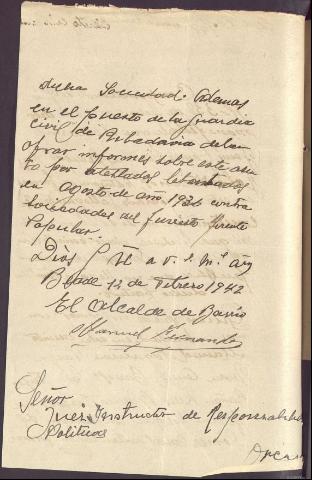 dicha Sociedad. Ademas
en el puesto de la Guardia
civil de Ribadavia deben
obrar informes sobre este asun
to por atestados lebantados
en Agosto de año 1936 contra
sociedades del funesto Frente
Popular.
Dios G a V. S. Ms añ
Beade 12 de Febrero 1942
El Alcalde de Barrio
Manuel Fernandez
Señor
Juez Instructor de Responsabilida
Politicas
Orense